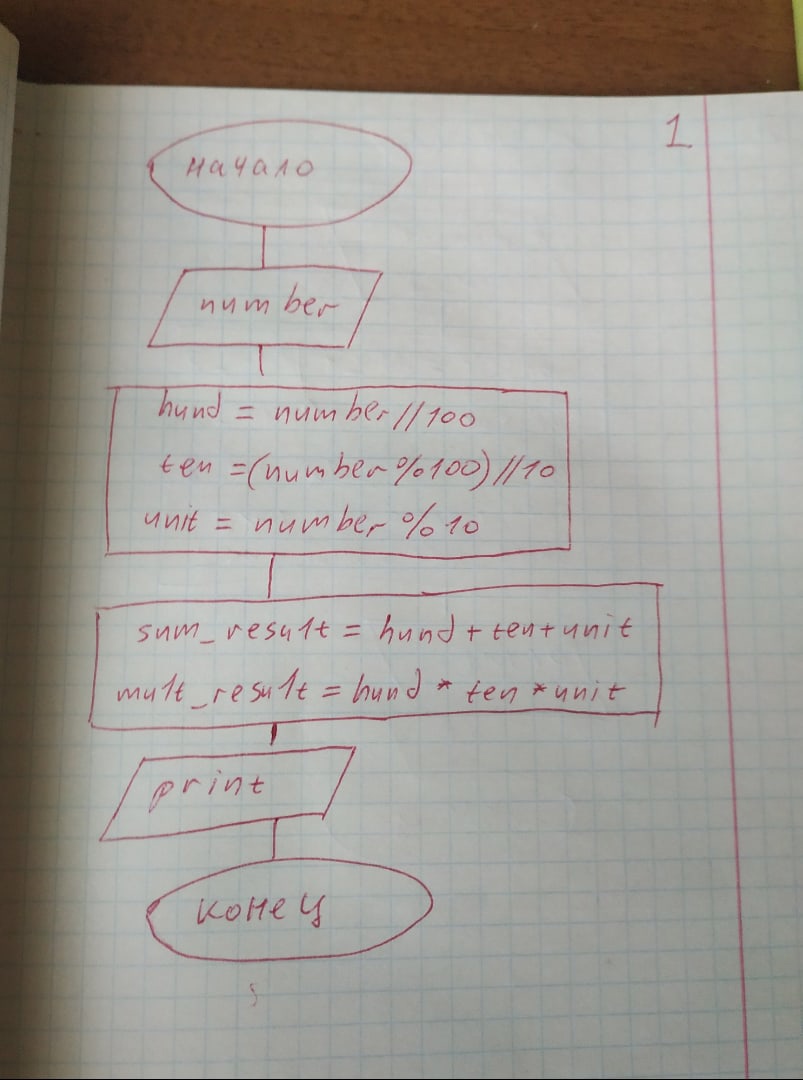 1
начало
number
hund = number//100
ten =(number%100)//10
unit = number%10
sum_result = hund+ten+unit
mult_result = hund * ten *unit
print
конец